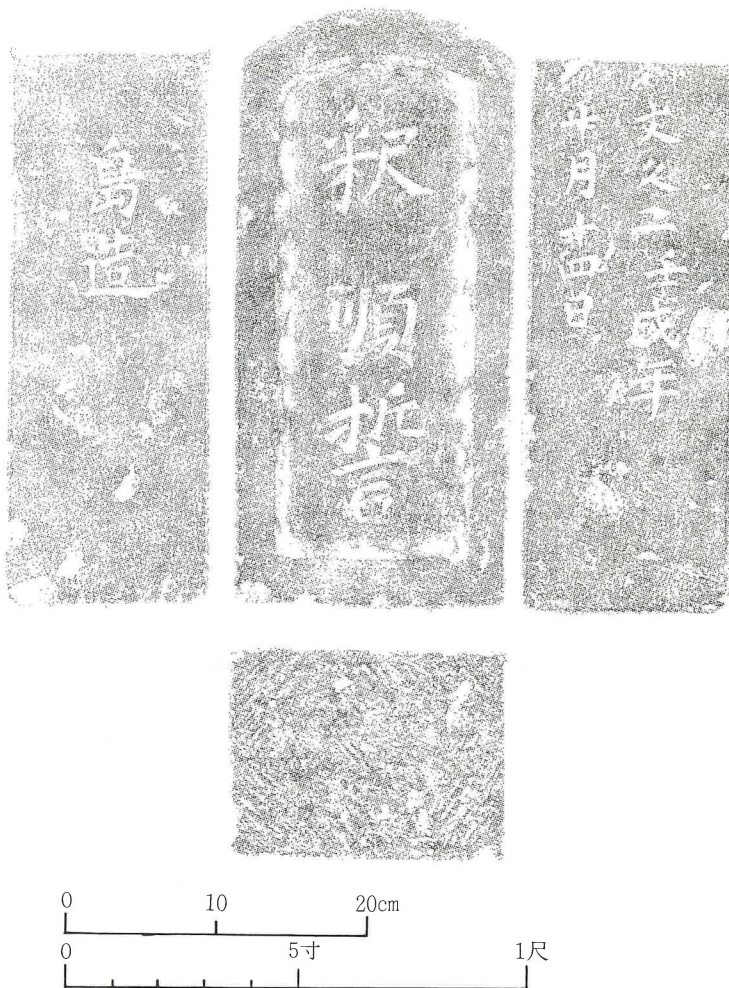 文久二壬戌年
月十四日
釈順誓
島造
0 10 20cm
0 5寸 1尺